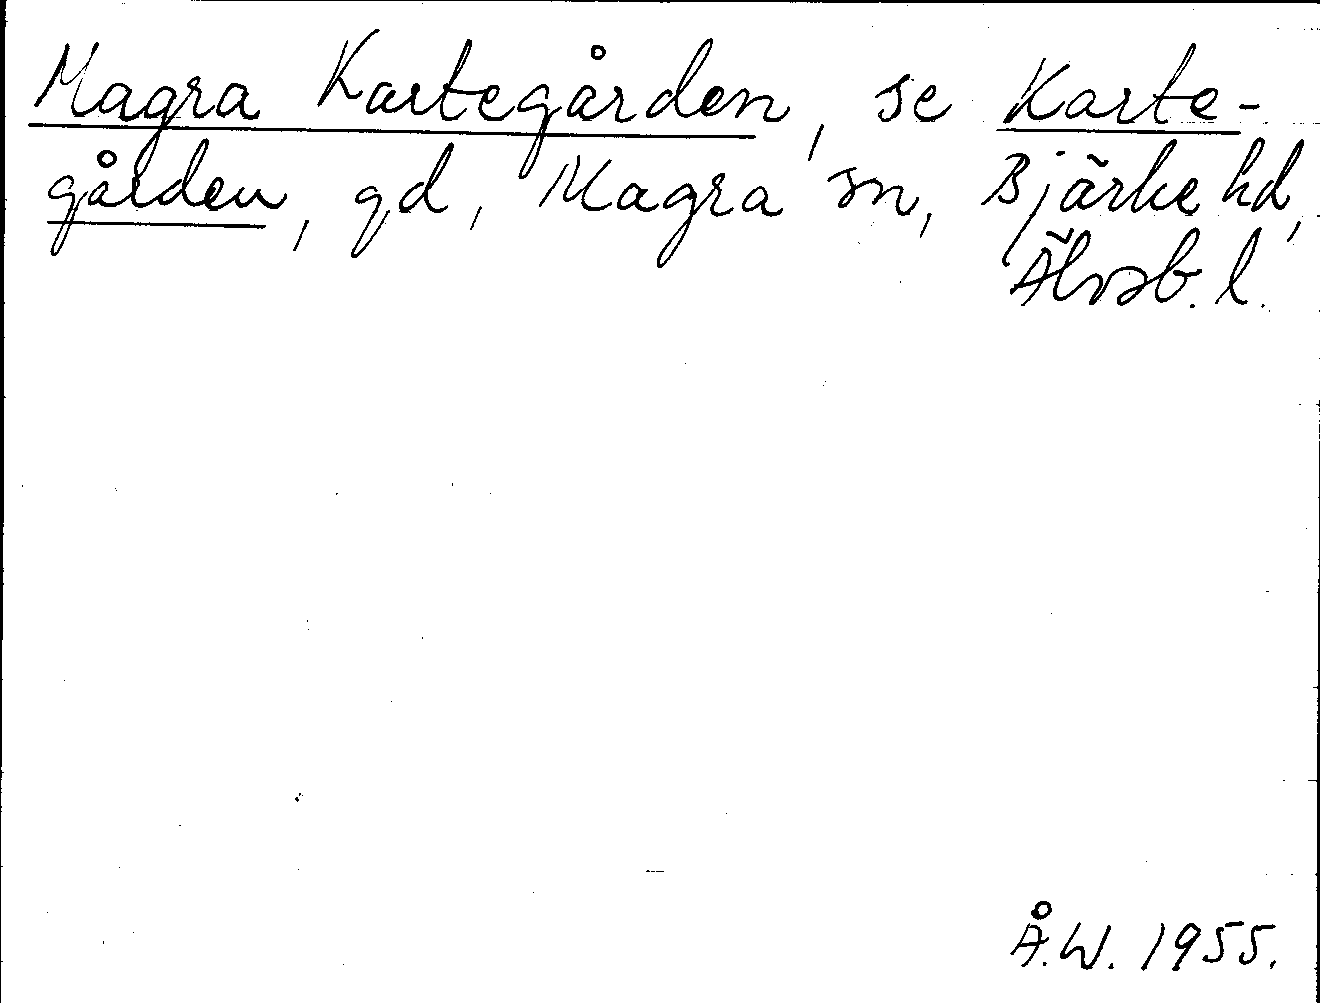 Magra Kartegården, se Karte-
gården, gd, Magra sn, Bjärke hd,
Älvsb. l.
Å.W. 1955.